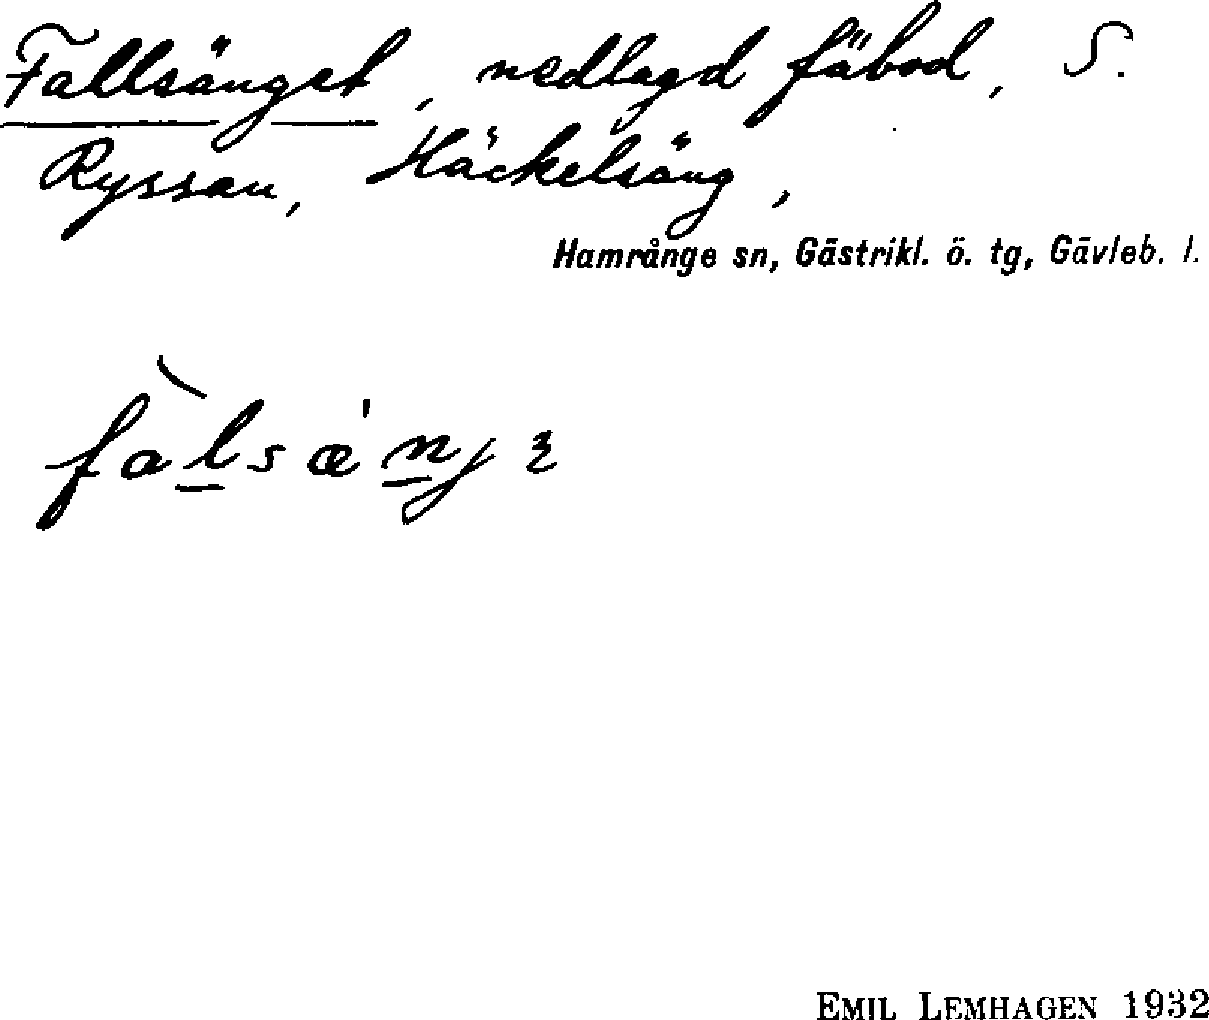 Fallsänget, nedlagd fäbod, S.
Ryssan, Häckelsäng,
Hamrånge sn, Gästrikl. ö. tg, Gävleb. l.
fàlsæ̀njɜ
EMIL LEMHAGEN 1932